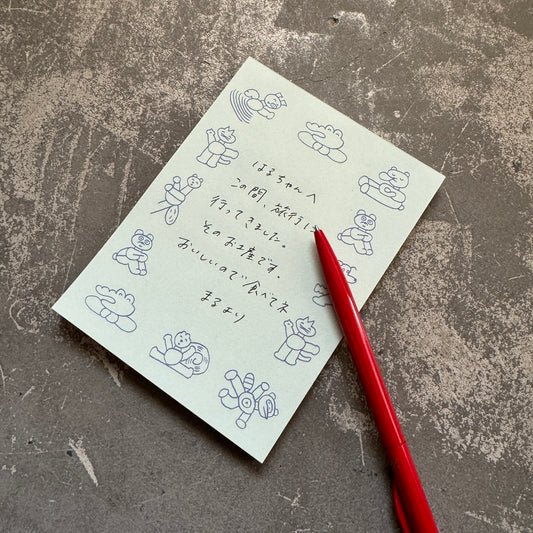 はるちゃんへ
この間、旅行に
行ってきました。
そのお土産です。
おいしいので食べてネ
まるより